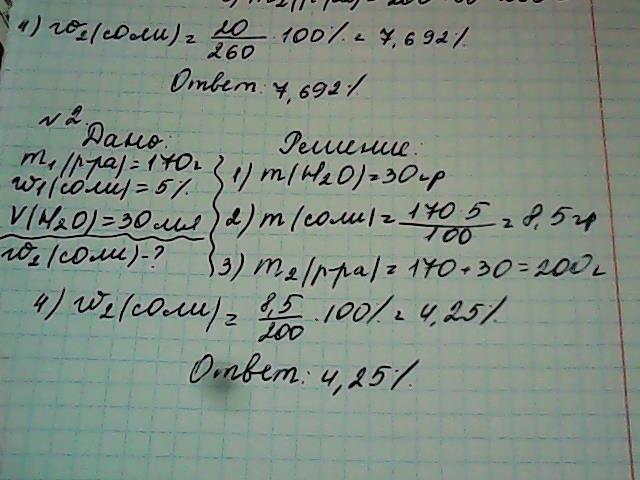 4) w₂(соли) = 20/260 · 100% = 7,692%
Ответ: 7,692%
№2.
Дано:
m₁(р-ра) = 170г
w₁(соли) = 5%
V(H₂O) = 30мл
w₂(соли) - ?
Решение:
1) m(H₂O) = 30гр
2) m(соли) = 170 5/100 = 8,5гр
3) m₂(р-ра) = 170 + 30 = 200г
4) w₂(соли) = 8,5/200 · 100% = 4,25%
Ответ: 4,25%.